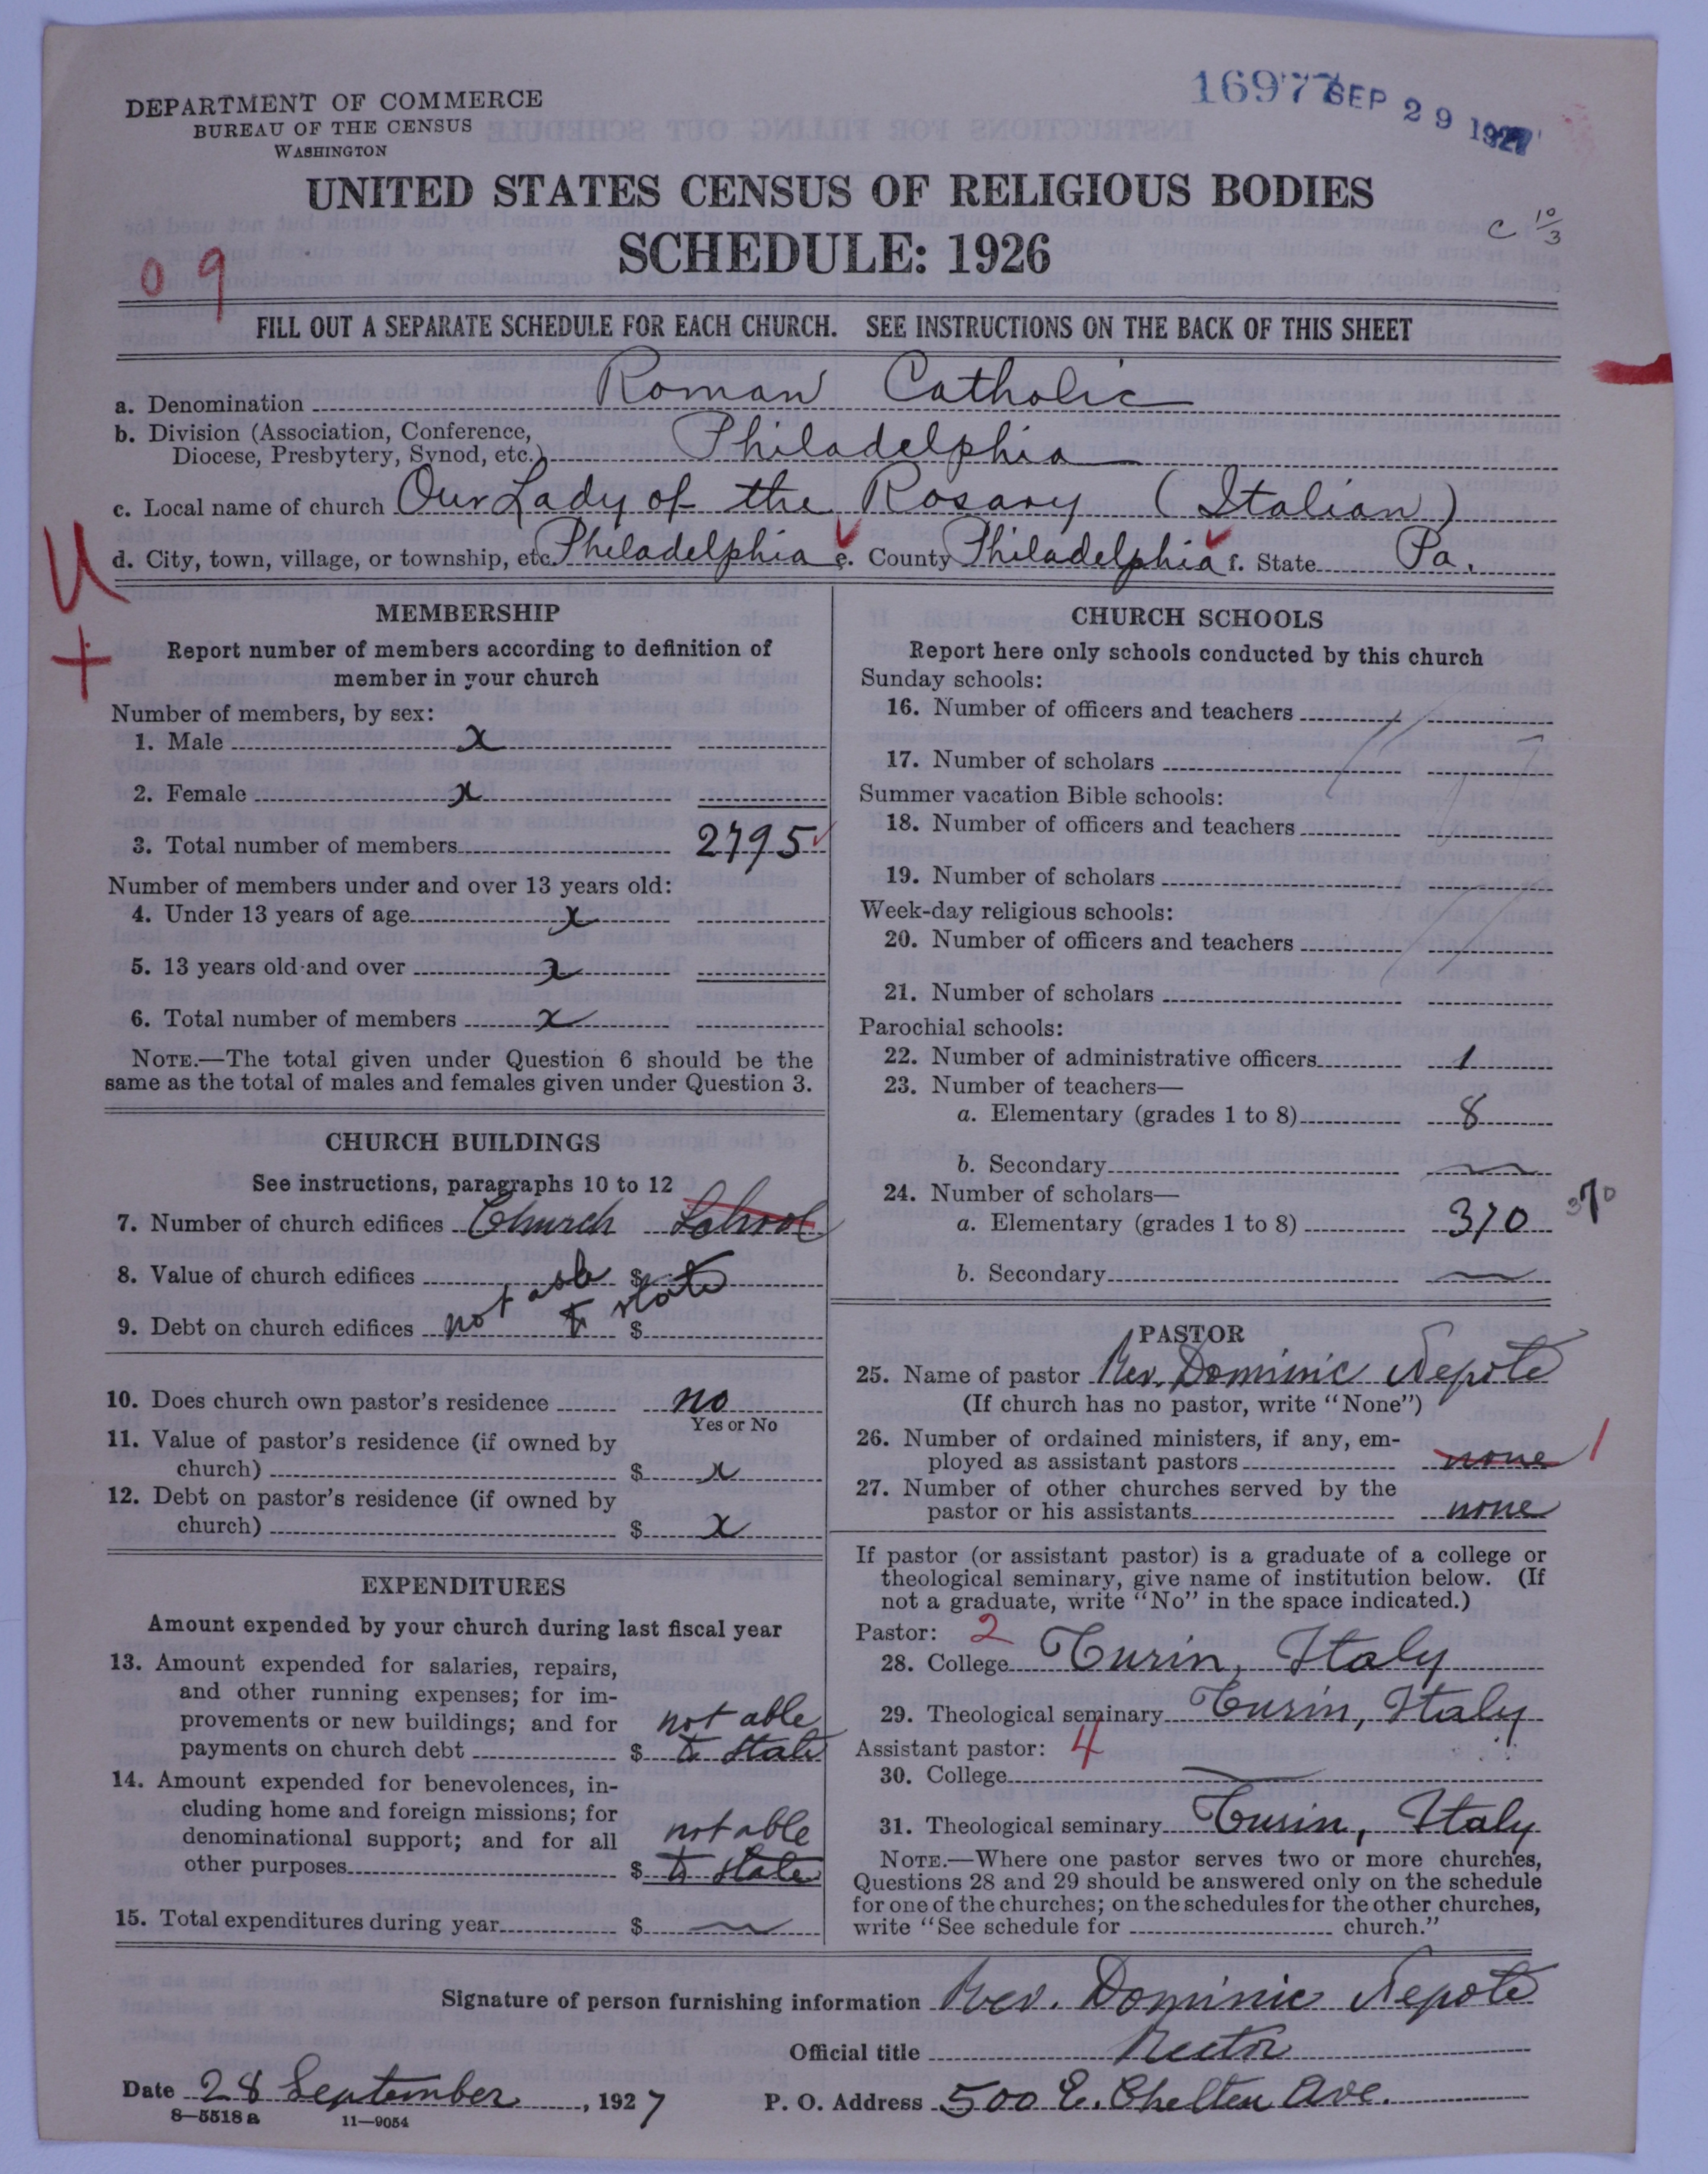 DEPARTMENT OF COMMERCE
BUREAU OF THE CENSUS
WASHINGTON
16977 SEP 29 1927
UNITED STATES CENSUS OF RELIGIOUS BODIES
SCHEDULE: 1926
C 10/3
09
FILL OUT A SEPARATE SCHEDULE FOR EACH CHURCH. SEE INSTRUCTIONS ON THE BACK OF THIS SHEET
a. Denomination Roman Catholic
b. Division (Association, Conference,
Diocese, Presbytery, Synod, etc.) Philadelphia
c. Local name of church Our Lady of the Rosary (Italian)
d. City, town, village, or township, etc. Philadelphia e. County Philadelphia f. State Pa.
U
+
MEMBERSHIP
Report number of members according to definition of
member in your church
Number of members, by sex:
1. Male x
2. Female x
3. Total number of members 2795
Number of members under and over 13 years old:
4. Under 13 years of age x
5. 13 years old and over x
6. Total number of members x
NOTE.—The total given under Question 6 should be the
same as the total of males and females given under Question 3.
CHURCH BUILDINGS
See instructions, paragraphs 10 to 12
7. Number of church edifices Church School
8. Value of church edifices $
not able to state
9. Debt on church edifices $
10. Does church own pastor's residence no
Yes or No
11. Value of pastor's residence (if owned by
church) $ x
12. Debt on pastor's residence (if owned by
church) $ x
EXPENDITURES
Amount expended by your church during last fiscal year
13. Amount expended for salaries, repairs,
and other running expenses; for im-
provements or new buildings; and for not able
payments on church debt $ to state
14. Amount expended for benevolences, in-
cluding home and foreign missions; for
denominational support; and for all not able
other purposes $ to state
15. Total expenditures during year $ —
CHURCH SCHOOLS
Report here only schools conducted by this church
Sunday schools:
16. Number of officers and teachers
17. Number of scholars
Summer vacation Bible schools:
18. Number of officers and teachers
19. Number of scholars
Week-day religious schools:
20. Number of officers and teachers
21. Number of scholars
Parochial schools:
22. Number of administrative officers 1
23. Number of teachers—
a. Elementary (grades 1 to 8) 8
b. Secondary —
24. Number of scholars—
a. Elementary (grades 1 to 8) 370 370
b. Secondary —
PASTOR
25. Name of pastor Rev. Dominic Nepote
(If church has no pastor, write "None")
26. Number of ordained ministers, if any, em-
ployed as assistant pastors none 1
27. Number of other churches served by the
pastor or his assistants none
If pastor (or assistant pastor) is a graduate of a college or
theological seminary, give name of institution below. (If
not a graduate, write "No" in the space indicated.)
Pastor: 2
28. College Turin, Italy
29. Theological seminary Turin, Italy
Assistant pastor: 4
30. College —
31. Theological seminary Turin, Italy
NOTE.—Where one pastor serves two or more churches,
Questions 28 and 29 should be answered only on the schedule
for one of the churches; on the schedules for the other churches,
write "See schedule for church."
Signature of person furnishing information Rev. Dominic Nepote
Official title Rector
Date 28 September, 1927 P. O. Address 500 E. Chelten Ave.
8—5518 a 11—9054